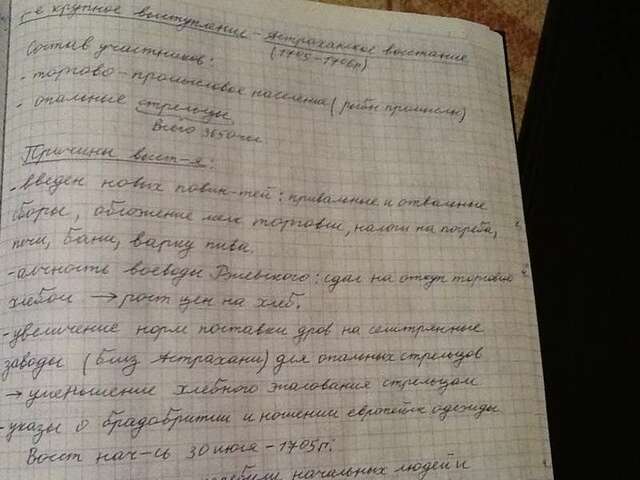 1-е крупное выступление - Астраханское восстание
(1705-1706г)
Состав участников:
- торгово-промысловое население (рыбн промыслы)
- опальные стрельцы
Всего 3650 чел
Причины высст-я:
- введен новых повин-тей: привальные и отвальные
сборы, обложение мелк торговли, налоги на погреба,
печи, бани, варку пива.
- алчность воеводы Ржевского: сдал на откуп торговлю
хлебом → рост цен на хлеб.
- увеличение норм поставки дров на селитряные
заводы (близ Астрахани) для опальных стрельцов
→ уменьшение хлебного жалования стрельцам
- указы о брадобритии и ношении европейск одежды
Восст нач-сь 30 июля - 1705г:
начальных людей и